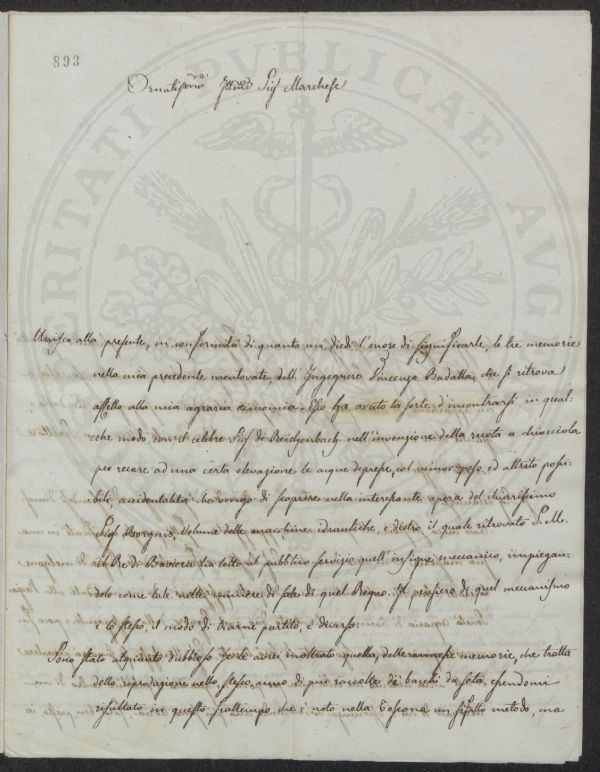 893
Ornatissmo Illmo Sigr Marchese
Unisco alla presente, in conformità di quanto mi diedi l'onore di significarle, le tre memorie
nella mia precedente mentovate, dell'Ingegnere Vincenzo Badalla, che si ritrova
assetto alla mia agraria economia. Esso ha avuto la sorte d'incontrarsi in qual-
che modo con il celebre Sigr di Reichenbach nell'invenzione della ruota a chiocciola
per recare ad una certa elevazione le acque depresse, col minor peso ed attrito possi-
bili, accidentalità che vengo di scoprire nella interessante opera del chiarissimo
Sigr Borgnis, volume delle macchine idrauliche, e dietro il quale ritrovato S. M.
il Re di Baviera ha tolto al pubblico servizio quell'insigne meccanico, impiegan-
dolo come tale nelle miniere di sale di quel Regno. Il pensiero di quel meccanismo
è lo stesso, il modo di trarne partito, è diverso.
Sono stato alquanto dubbioso se le avrei inoltrato quella, delle annesse memorie, che tratta
della riproduzione nello stesso anno di più raccolte de' bacchi da seta, essendomi
risultato in questo frattempo che è noto nella Toscana un siffatto metodo, ma
VERITATI PUBLICAE AUG